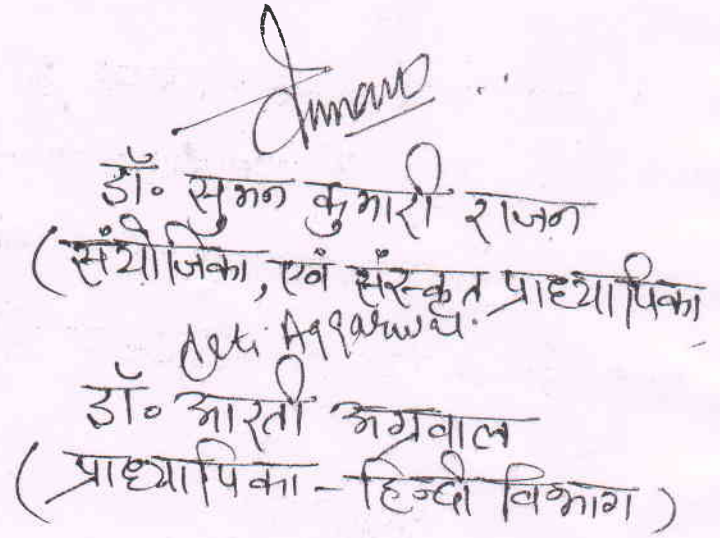 Suman
डॉ० सुमन कुमारी राजन
(संयोजिका, एवं संस्कृत प्राध्यापिका
Arti Aggarwal.
डॉ० आरती अग्रवाल
(प्राध्यापिका - हिन्दी विभाग)